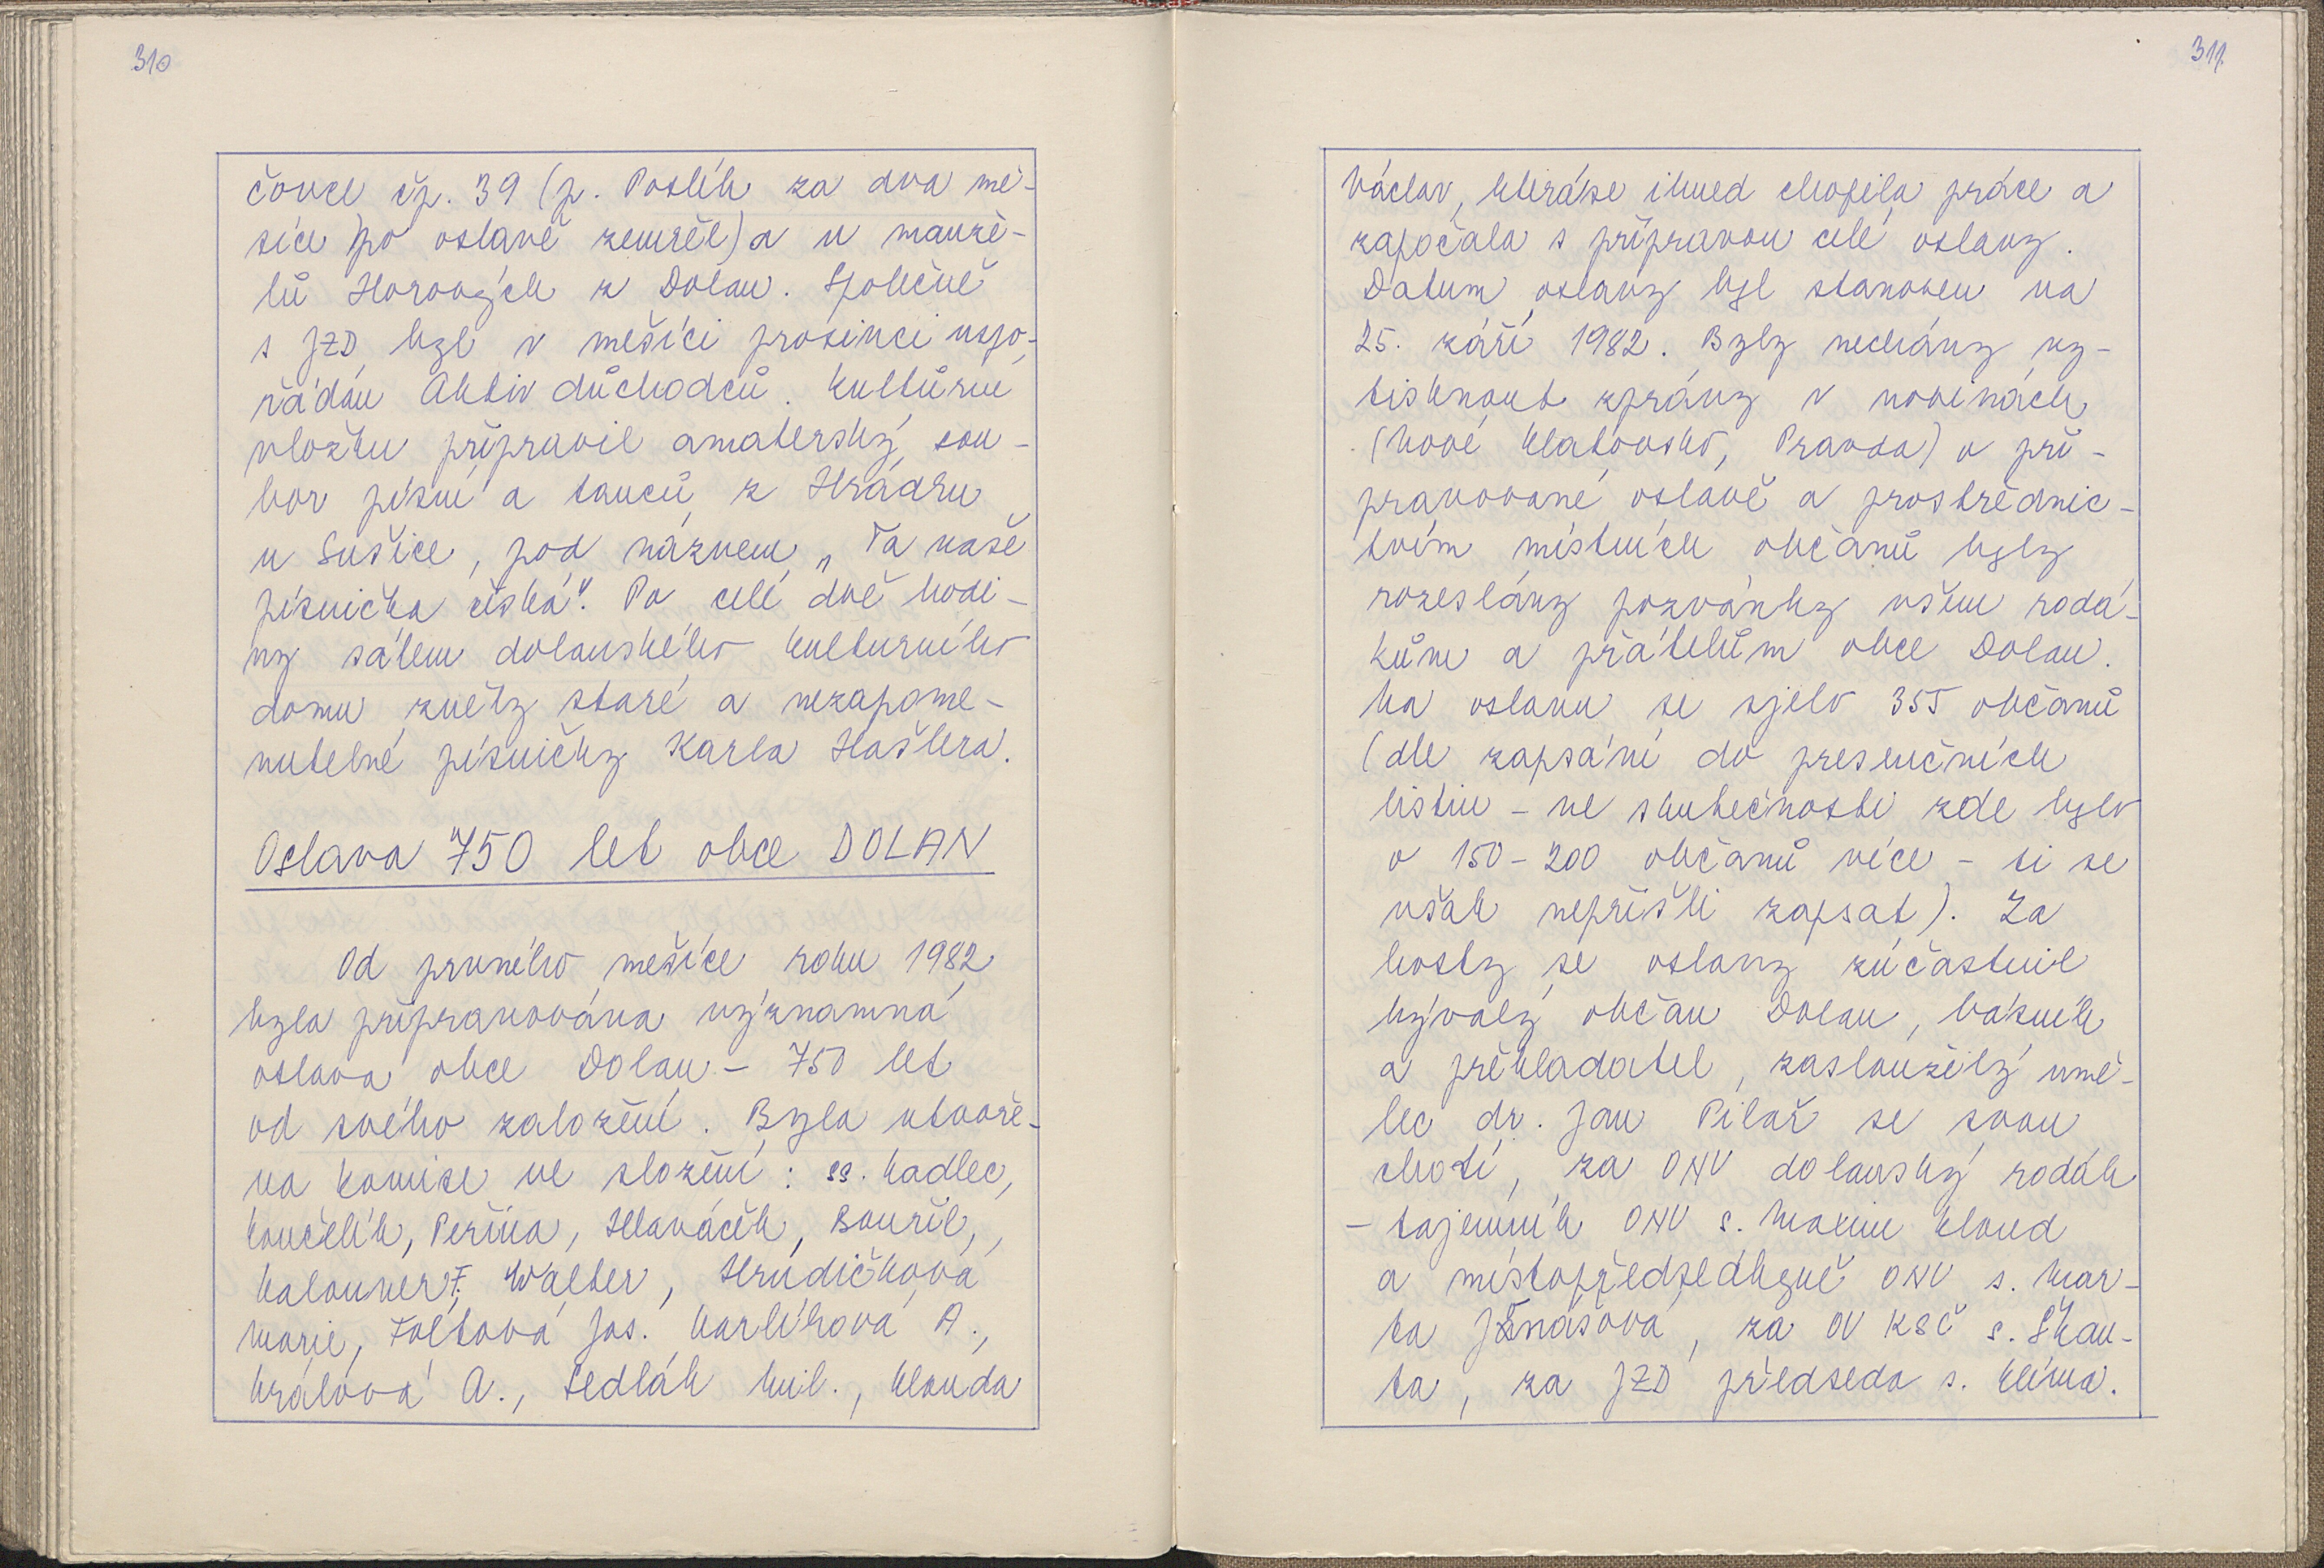 310
čovce čp. 39 (p. Poslík za dva mě-
síce po oslavě zemřel) a u manže-
lů Horových z Dolan. Společně
s JZD byl v měsíci prosinci uspo-
řádán Aktiv důchodců. Kulturní
vložku připravil amaterský sou-
bor písní a tanců z Hrádku
u Sušice, pod názvem „Ta naše
písnička česká". Po celé dvě hodi-
ny sálem dolanského kulturního
domu zněly staré a nezapome-
nutelné písničky Karla Hašlera.
Oslava 750 let obce DOLAN
Od prvního měsíce roku 1982
byla připravována významná
oslava obce Dolan - 750 let
od svého založení. Byla utvoře-
na komise ve složení: ss. Kadlec,
Koučelík, Peřina, Hlaváček, Bouřil,
Kalouner F. Walter, Hrudičková
Marie, Foltová Jos. Karlíková A.,
Králová A., Sedlák Mil., Klouda
311.
Václav, která se ihned chopila práce a
započala s přípravou celé oslavy.
Datum oslavy byl stanoven na
25. září 1982. Byly nechány vy-
tisknout zprávy v novinách
(Nové Klatovsko, Pravda) o při-
pravované oslavě a prostřednic-
tvím místních občanů byly
rozeslány pozvánky všem rodá-
kům a přátelům obce Dolan.
Na oslavu se sjelo 355 občanů
(dle zapsání do presenčních
listin - ve skutečnosti zde bylo
o 150-200 občanů více - ti se
však nepřišli zapsat). Za
hosty se oslavy zúčastnil
bývalý občan Dolan, básník
a překladatel, zasloužilý umě-
lec dr. Jan Pilař se svou
chotí, za ONV dolanský rodák
- tajemník ONV s. Maxim Kloud
a místopředsedkyně ONV s. Mar-
ta Jánašová, za OV KSČ s. Skau-
ta, za JZD předseda s. Klíma.